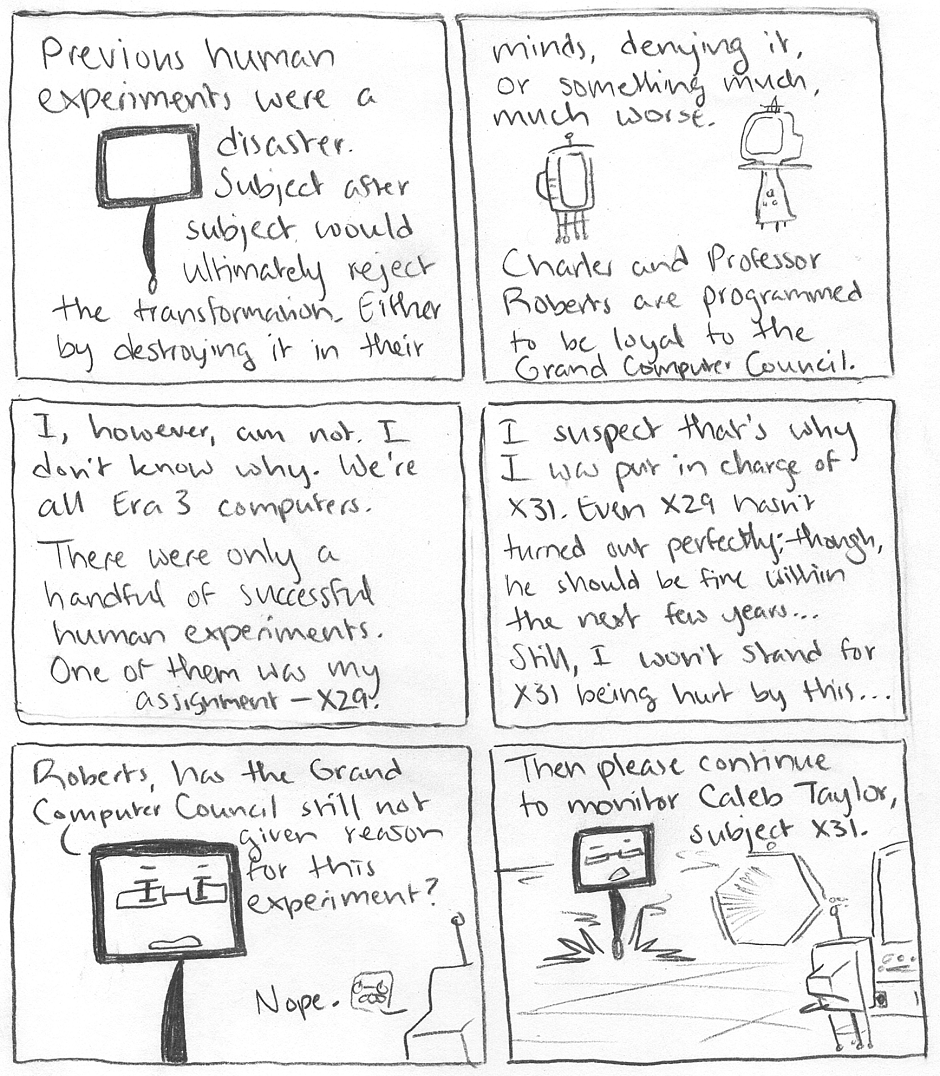 Previous human
experiments were a
disaster.
Subject after
subject would
ultimately reject
the transformation. Either
by destroying it in their
minds, denying it,
or something much,
much worse.
Charles and Professor
Roberts are programmed
to be loyal to the
Grand Computer Council.
I, however, am not. I
don't know why. We're
all Era 3 computers.
There were only a
handful of successful
human experiments.
One of them was my
assignment – X29.
I suspect that's why
I was put in charge of
X31. Even X29 hasn't
turned out perfectly; though,
he should be fine within
the next few years...
Still, I won't stand for
X31 being hurt by this...
Roberts, has the Grand
Computer Council still not
given reason
for this
experiment?
Nope.
Then please continue
to monitor Caleb Taylor,
subject X31.